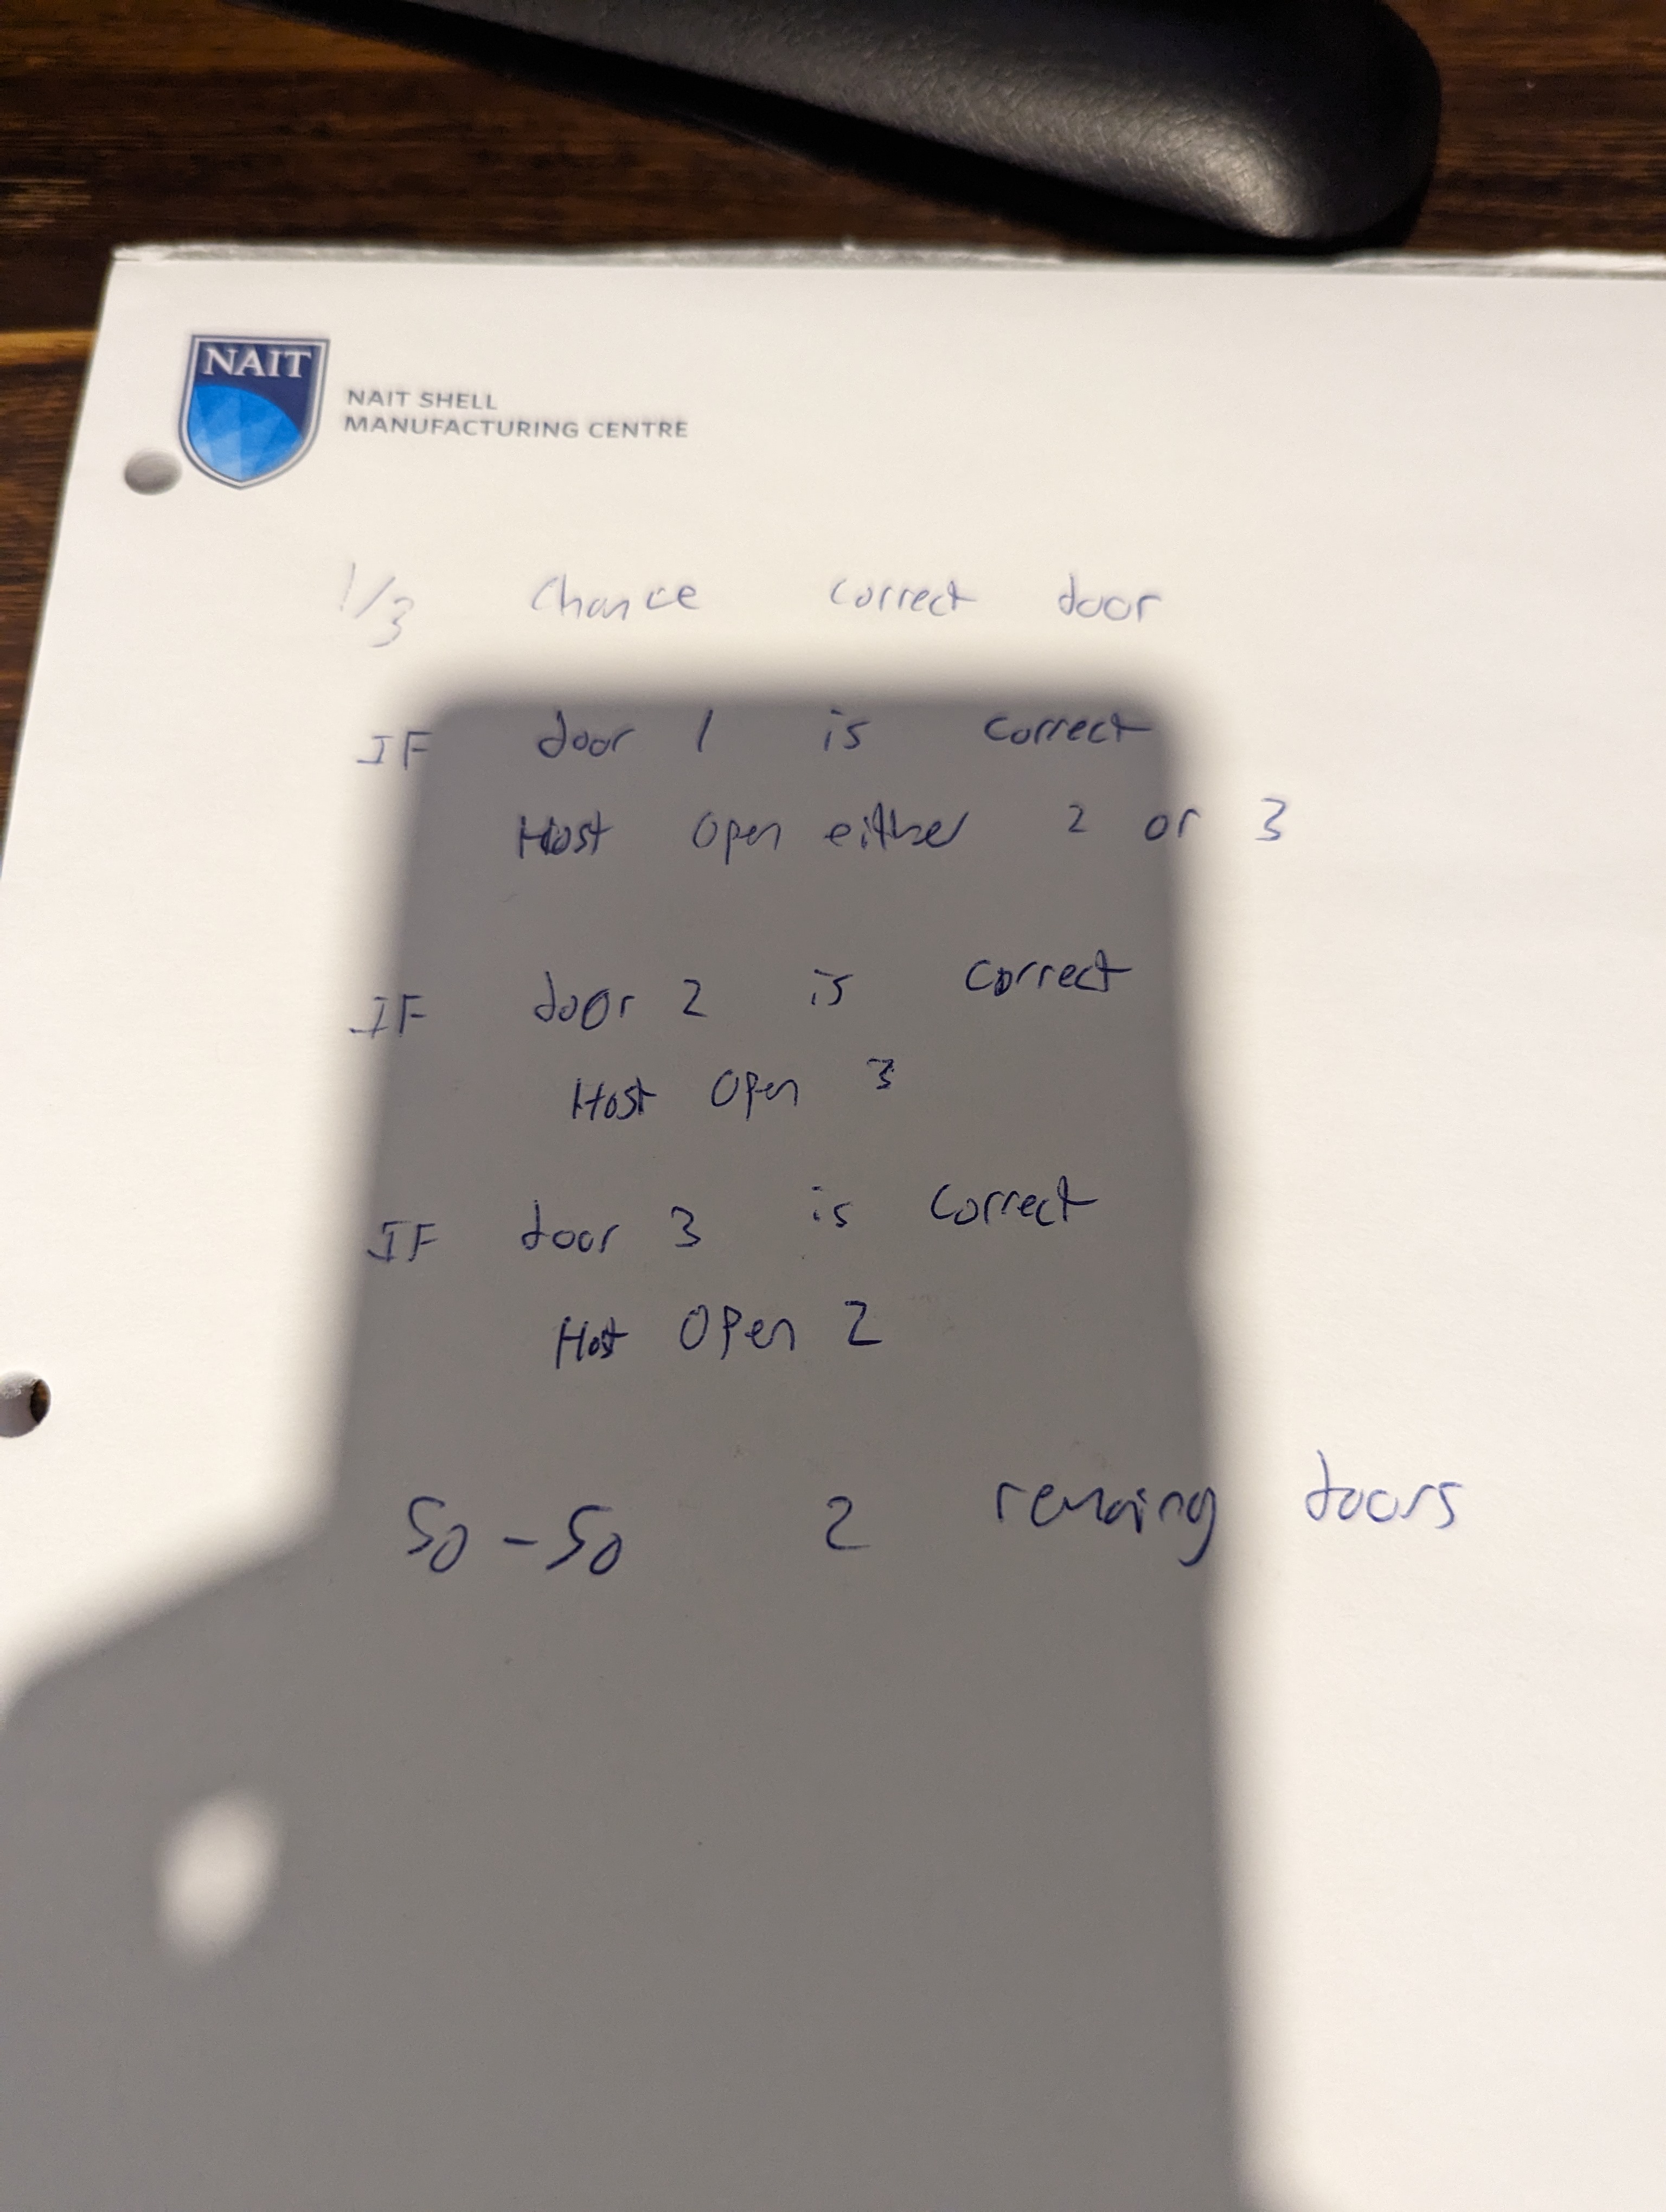 NAIT
NAIT SHELL
MANUFACTURING CENTRE
1/3 Chance correct door
IF door 1 is correct
Host open either 2 or 3
IF door 2 is correct
Host open 3
IF door 3 is correct
Host open 2
50-50 2 remaing doors